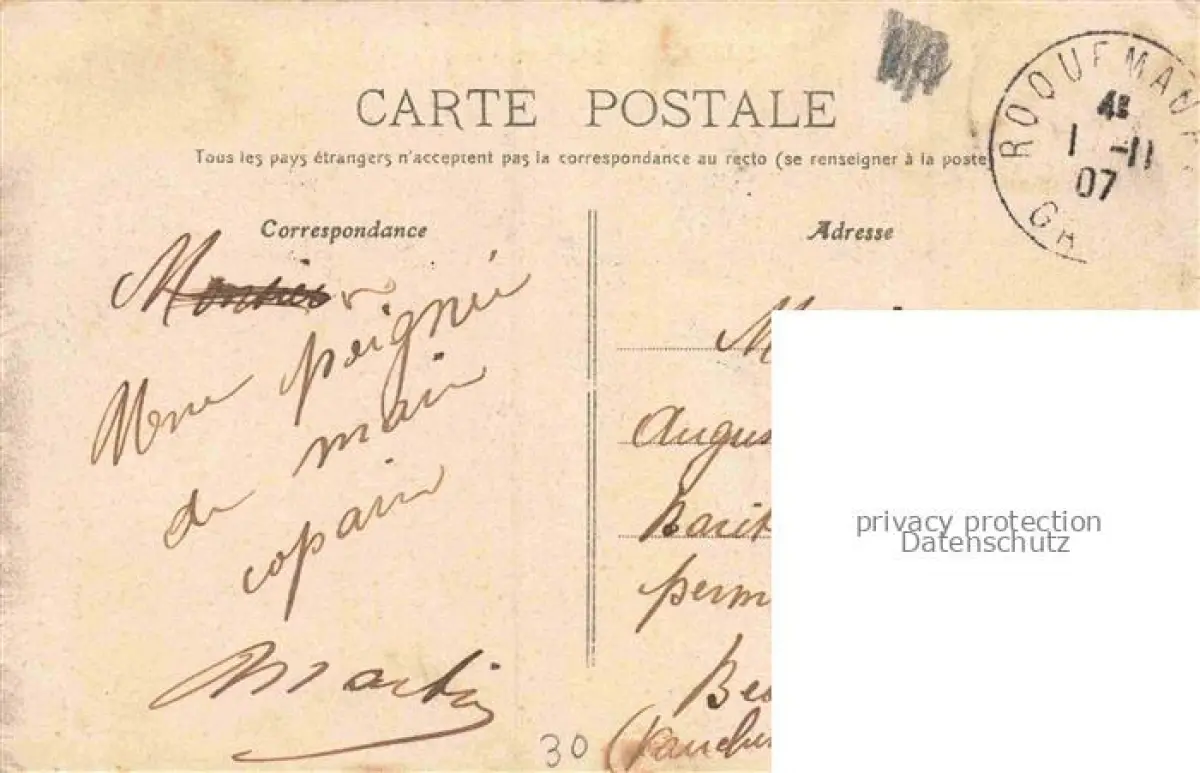 CARTE POSTALE
Tous les pays étrangers n'acceptent pas la correspondance au recto (se renseigner à la poste
ROQUEMAUR
4E
1 -11
07
GA
Correspondance
Une poignée
de main
copain
Martin
Adresse
M
Augus
perm
Be
(Vauclu
30
privacy protection
Datenschutz